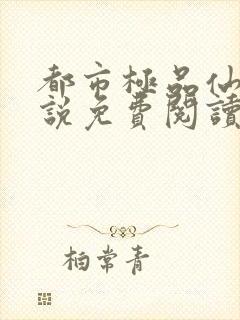 都市極品仙
說免費閱讀
柏常青